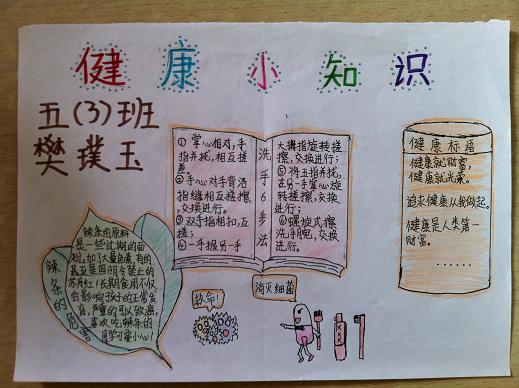 健康小知识
五(3)班
樊璞玉
洗手6步法
①掌心相对,手
指并拢,相互搓
揉。
②手心对手背沿
指缝相互搓擦,
交换进行。
③双手指相扣,互
搓;
④一手握另一手
大拇指旋转搓
擦,交换进行;
⑤将五指并拢,
在另一手掌心旋
转搓擦,交换
进行;
⑥螺旋式擦
洗手腕,交换
进行。
健康标语
健康就财富,
健康就光荣。
追求健康从我做起。
健康是人类第一
财富。
……
辣条的危害
辣条的原料
是一些过期的面
粉,加了大量色素,有的
甚至是国明令禁止的
苏丹红!长期食用不仅
会影响孩子的正常发
育,严重的可以致癌,
喜欢吃辣条的
同学可要小心!
救命!
消灭细菌